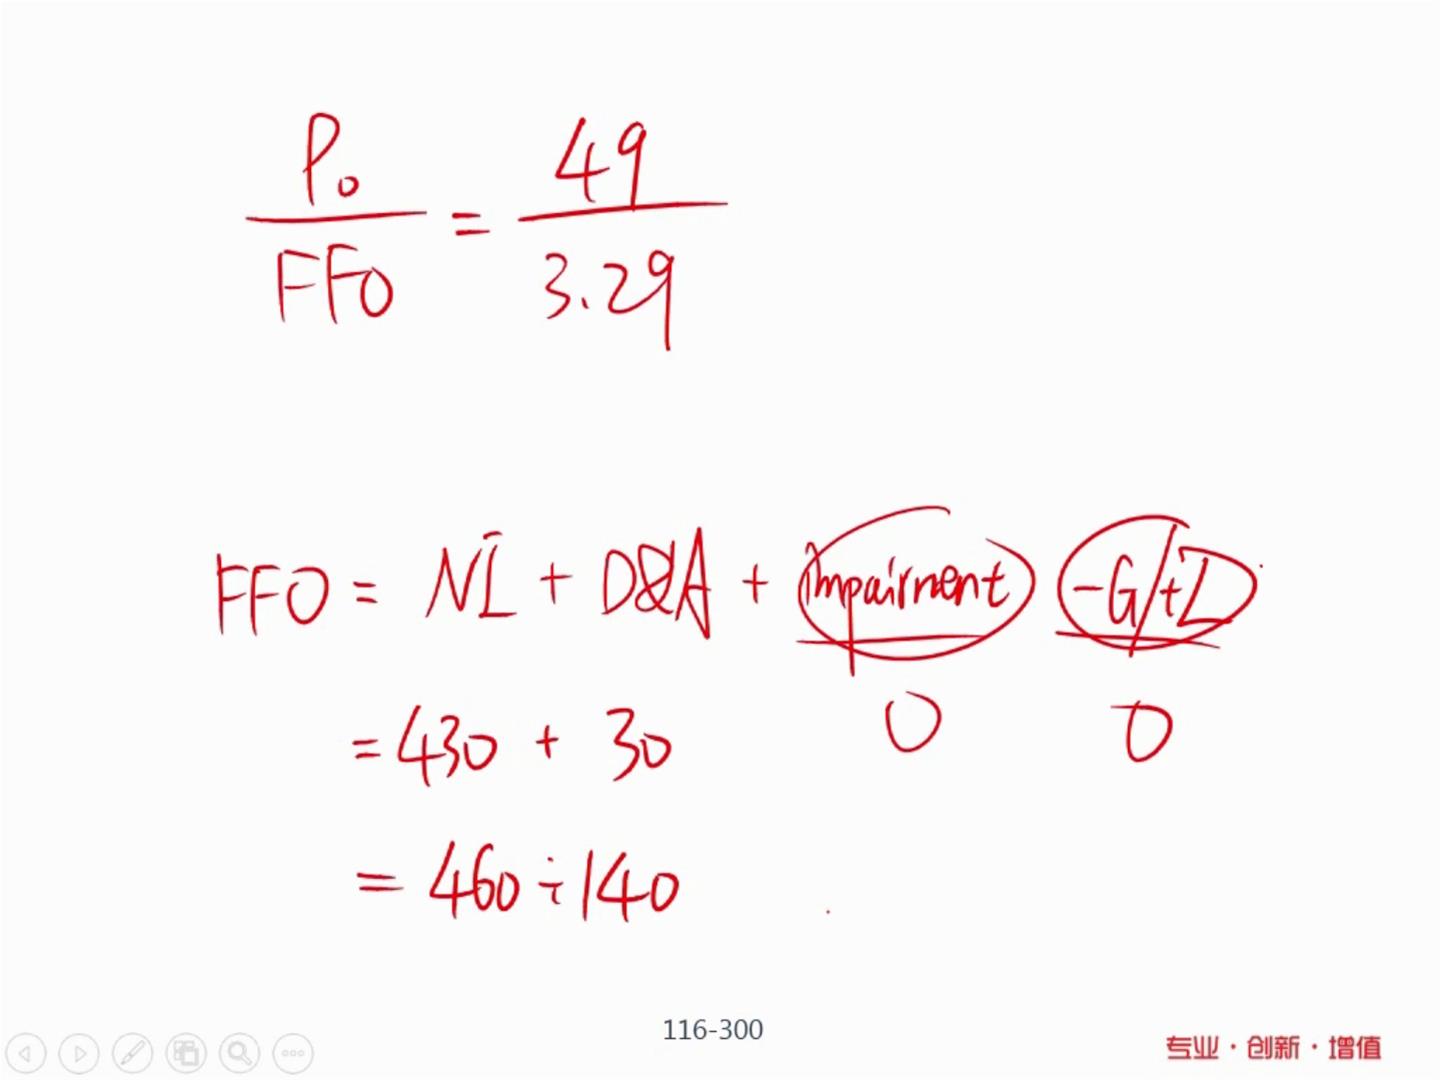 P₀/FFO = 49/3.29
FFO = NI + D&A + impairment -G/+L
0 0
= 430 + 30
= 460 ÷ 140
116-300
专业·创新·增值